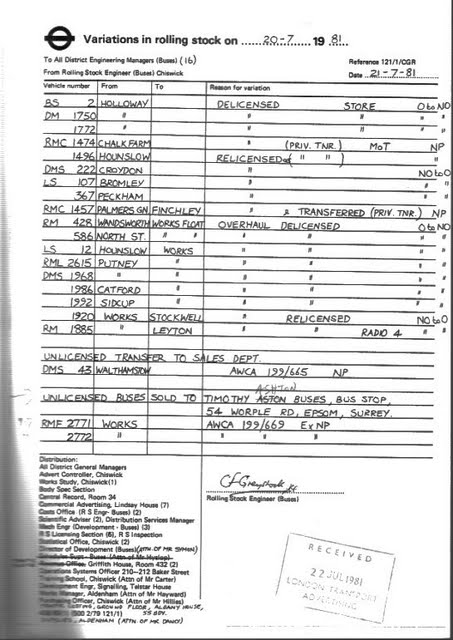 Variations in rolling stock on 20-7 19 81
To All District Engineering Managers (Buses) (16)
Reference 121/1/CGR
From Rolling Stock Engineer (Buses) Chiswick
Date 21-7-81
Vehicle number From To Reason for variation
BS 2 HOLLOWAY DELICENSED STORE O to NO
DM 1750 " " " "
1772 " " " "
RMC 1474 CHALK FARM " (PRIV. TNR.) MoT NP
1496 HOUNSLOW RELICENSED ( " " )
DMS 222 CROYDON " NO to O
LS 107 BROMLEY " " "
367 PECKHAM " "
RMC 1457 PALMERS GN. FINCHLEY " & TRANSFERRED (PRIV. TNR.) NP
RM 428 WANDSWORTH WORKS FLOAT OVERHAUL DELICENSED O to NO
586 NORTH ST. " " " " "
LS 12 HOUNSLOW WORKS " " "
RML 2615 PUTNEY " " " "
DMS 1968 " " " " "
1986 CATFORD " " " "
1992 SIDCUP " " " "
1920 WORKS STOCKWELL " RELICENSED NO to O
RM 1885 " LEYTON " " RADIO 4 "
UNLICENSED TRANSFER TO SALES DEPT.
DMS 43 WALTHAMSTOW AWCA 199/665 NP
ASHTON
UNLICENSED BUSES SOLD TO TIMOTHY ASTON BUSES, BUS STOP,
54 WORPLE RD, EPSOM, SURREY.
RMF 2771 WORKS AWCA 199/669 Ex NP
2772 " "
Distribution:
All District General Managers
Advert Controller, Chiswick
Works Study, Chiswick (1)
Body Spec Section
Central Record, Room 34
Commercial Advertising, Lindsay House (7)
Costs Office (R S Engr- Buses) (2)
Scientific Adviser (2), Distribution Services Manager
Mech Engr (Development - Buses) (3)
R S Licensing Section (6), R S Inspection
Statistical Office, Chiswick (2)
Director of Development (Buses) (ATTN. OF MR SYMON)
Griffith House, Room 432 (2)
Operations Systems Officer 210-212 Baker Street
Training School, Chiswick (Attn of Mr Carter)
Development Engr, Signalling, Telstar House
Works Manager, Aldenham (Attn of Mr Hayward)
Purchasing Officer, Chiswick (Attn of Mr Hillies)
FLOOR, ALBANY HOUSE,
2000 2/79 121/1) 55 BDY.
ALDENHAM (ATTN OF MR DANCY)
Rolling Stock Engineer (Buses)
RECEIVED
22 JUL 1981
LONDON TRANSPORT
ADVERTISING